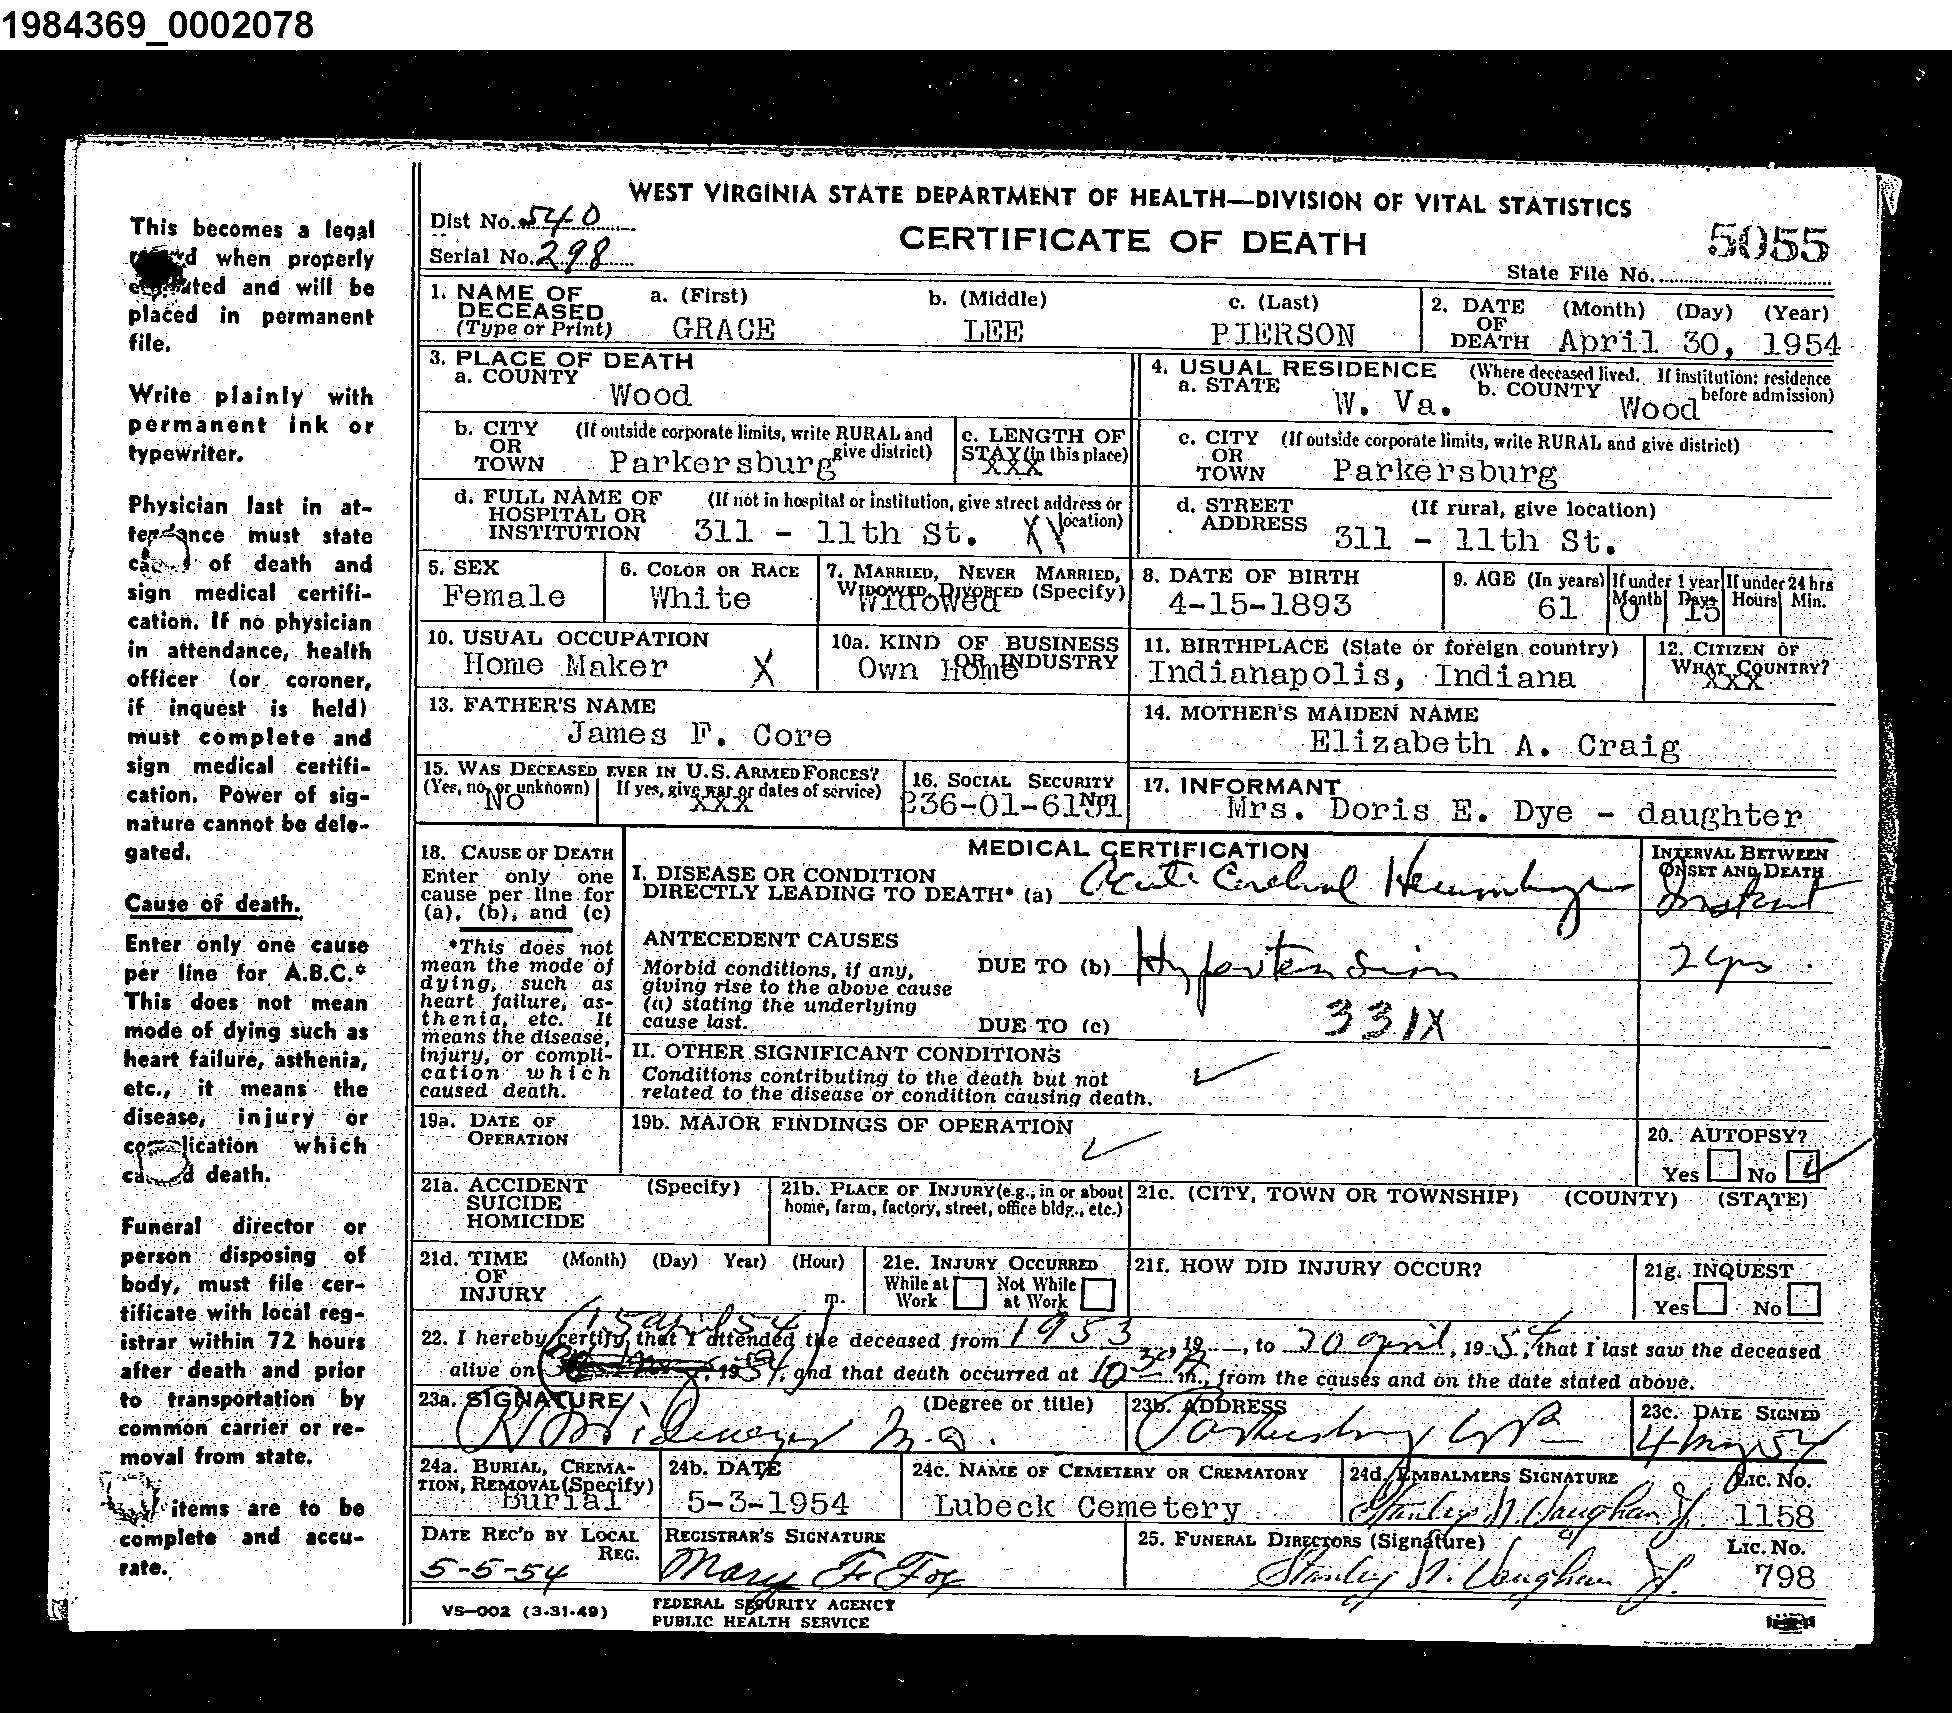 1984369_0002078
WEST VIRGINIA STATE DEPARTMENT OF HEALTH—DIVISION OF VITAL STATISTICS
Dist No. 540
Serial No. 298
CERTIFICATE OF DEATH
5055
State File No.
1. NAME OF DECEASED (Type or Print) a. (First) GRACE b. (Middle) LEE c. (Last) PIERSON
2. DATE OF DEATH (Month) (Day) (Year) April 30, 1954
3. PLACE OF DEATH
a. COUNTY Wood
4. USUAL RESIDENCE (Where deceased lived. If institution: residence before admission)
a. STATE W. Va. b. COUNTY Wood
b. CITY OR TOWN (If outside corporate limits, write RURAL and give district) Parkersburg
c. LENGTH OF STAY (in this place) XXX
c. CITY OR TOWN (If outside corporate limits, write RURAL and give district) Parkersburg
d. FULL NAME OF HOSPITAL OR INSTITUTION (If not in hospital or institution, give street address or location) 311 - 11th St. XX
d. STREET ADDRESS (If rural, give location) 311 - 11th St.
5. SEX Female
6. COLOR OR RACE White
7. MARRIED, NEVER MARRIED, WIDOWED, DIVORCED (Specify) Widowed
8. DATE OF BIRTH 4-15-1893
9. AGE (In years) 61 If under 1 year Month 0 Days 15 If under 24 hrs Hours Min.
10. USUAL OCCUPATION Home Maker X
10a. KIND OF BUSINESS OR INDUSTRY Own Home
11. BIRTHPLACE (State or foreign country) Indianapolis, Indiana
12. CITIZEN OF WHAT COUNTRY? XXX
13. FATHER'S NAME James F. Core
14. MOTHER'S MAIDEN NAME Elizabeth A. Craig
15. WAS DECEASED EVER IN U.S. ARMED FORCES? (Yes, no, or unknown) No If yes, give war or dates of service) XXX
16. SOCIAL SECURITY No. 236-01-6191
17. INFORMANT Mrs. Doris E. Dye - daughter
18. CAUSE OF DEATH
Enter only one cause per line for (a), (b), and (c)
*This does not mean the mode of dying, such as heart failure, asthenia, etc. It means the disease, injury, or complication which caused death.
MEDICAL CERTIFICATION
INTERVAL BETWEEN ONSET AND DEATH
I. DISEASE OR CONDITION DIRECTLY LEADING TO DEATH* (a) Acute Cerebral Hemorrhage Instant
ANTECEDENT CAUSES
Morbid conditions, if any, giving rise to the above cause (a) stating the underlying cause last.
DUE TO (b) Hypertension 2 yrs.
DUE TO (c) 331X
II. OTHER SIGNIFICANT CONDITIONS
Conditions contributing to the death but not related to the disease or condition causing death.
19a. DATE OF OPERATION
19b. MAJOR FINDINGS OF OPERATION
20. AUTOPSY? Yes No
21a. ACCIDENT SUICIDE HOMICIDE (Specify)
21b. PLACE OF INJURY (e.g., in or about home, farm, factory, street, office bldg., etc.)
21c. (CITY, TOWN OR TOWNSHIP) (COUNTY) (STATE)
21d. TIME OF INJURY (Month) (Day) Year) (Hour) m.
21e. INJURY OCCURRED While at Work Not While at Work
21f. HOW DID INJURY OCCUR?
21g. INQUEST Yes No
15 april 54
22. I hereby certify that I attended the deceased from 1953, 19 , to 30 april, 1954, that I last saw the deceased
alive on , 1954, and that death occurred at 10 30 m., from the causes and on the date stated above.
23a. SIGNATURE (Degree or title) M.D.
23b. ADDRESS Parkersburg W Va
23c. DATE SIGNED 4 May 54
24a. BURIAL, CREMATION, REMOVAL (Specify) Burial
24b. DATE 5-3-1954
24c. NAME OF CEMETERY OR CREMATORY Lubeck Cemetery
24d. EMBALMERS SIGNATURE Stanley N. Vaughan Jr. LIC. NO. 1158
DATE REC'D BY LOCAL REG. 5-5-54
REGISTRAR'S SIGNATURE Mary F. Fox
25. FUNERAL DIRECTORS (Signature) Stanley N. Vaughan Jr. LIC. NO. 798
VS—002 (3-31-49)
FEDERAL SECURITY AGENCY
PUBLIC HEALTH SERVICE
This becomes a legal
when properly
and will be
placed in permanent
file.
Write plainly with
permanent ink or
typewriter.
Physician last in at-
tendance must state
of death and
sign medical certifi-
cation. If no physician
in attendance, health
officer (or coroner,
if inquest is held)
must complete and
sign medical certifi-
cation. Power of sig-
nature cannot be dele-
gated.
Cause of death.
Enter only one cause
per line for A.B.C.*
This does not mean
mode of dying such as
heart failure, asthenia,
etc., it means the
disease, injury or
complication which
caused death.
Funeral director or
person disposing of
body, must file cer-
tificate with local reg-
istrar within 72 hours
after death and prior
to transportation by
common carrier or re-
moval from state.
items are to be
complete and accu-
rate.